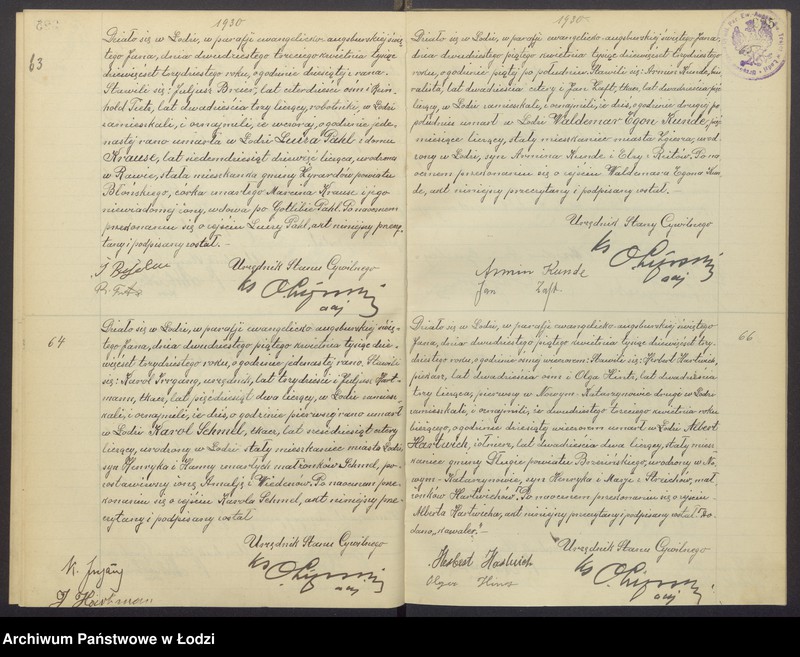 1930
63
Działo się w Łodzi, w parafji ewangelicko-augsburskiej świę-
tego Jana, dnia dwudziestego trzeciego kwietnia tysiąc
dziewięćset trzydziestego roku, o godzinie dziesiątej i rana.
Stawili się: Juljusz Breier, lat czterdzieści osm i Rein-
hold Fietz, lat dwadzieścia trzy liczący, robotnicy, w Łodzi
zamieszkali, i oznajmili, że wczoraj, o godzinie jede-
nastej rano umarła w Łodzi Luiza Pahl z domu
Krause, lat siedemdziesiąt dziewięć licząca, urodzona
w Rawie, stała mieszkanka gminy Żyrardów powiatu
Błońskiego, córka zmarłego Marcina Krause i jego
niewiadomej żony, wdowa po Gotlibie Pahl. Po naocznem
przekonaniu się o zejściu Luizy Pahl, akt niniejszy przeczy-
tany i podpisany został. —
Urzędnik Stanu Cywilnego
Ks
64
Działo się w Łodzi, w parafji ewangelicko-augsburskiej świę-
tego Jana, dnia dwudziestego piątego kwietnia tysiąc dzie-
więćset trzydziestego roku, o godzinie jedenastej rano. Stawili
się: Karol Irrgang, urzędnik, lat trzydzieści i Juljusz Hart-
mann, tkacz, lat pięćdziesiąt dwa liczący, w Łodzi zamiesz-
kali, i oznajmili, że dziś, o godzinie pierwszej rano umarł
w Łodzi Karol Schmel, tkacz, lat sześćdziesiąt cztery
liczący, urodzony w Łodzi stały mieszkaniec miasta Łodzi,
syn Henryka i Hanny zmarłych małżonków Schmel, po-
zostawiwszy żonę Amalję z Wiedenów. Po naocznem prze-
konaniu się o zejściu Karola Schmel, akt niniejszy prze-
czytany i podpisany został
Urzędnik Stanu Cywilnego
Ks
K. Irrgang
J Hartmann
1930
Działo się w Łodzi, w parafji ewangelicko-augsburskiej świętego Jana,
dnia dwudziestego piątego kwietnia tysiąc dziewięćset trzydziestego
roku, o godzinie piątej po południu. Stawili się: Armin Kunde,
lat dwadzieścia cztery i Jan Zaft, tkacz, lat dwadzieścia pięć
liczący, w Łodzi zamieszkali, i oznajmili, że dziś, o godzinie drugiej po
południu umarł w Łodzi Waldemar Egon Kunde,
miesięcy liczący, stały mieszkaniec miasta Zgierza, uro-
dzony w Łodzi, syn Armina Kunde i Elzy z Ritów. Po na-
ocznem przekonaniu się o zejściu Waldemara Egona Kun-
de, akt niniejszy przeczytany i podpisany został. —
Urzędnik Stanu Cywilnego
Ks
Armin Kunde
Jan Zaft
66
Działo się w Łodzi, w parafji ewangelicko-augsburskiej świętego
Jana, dnia dwudziestego piątego kwietnia tysiąc dziewięćset trzy-
dziestego roku, o godzinie ósmej wieczorem. Stawili się: Herbert Hartwich,
piekarz, lat dwadzieścia osm i Olga Hintz, lat dwadzieścia
trzy licząca, pierwszy w Nowym-Katarzynowie druga w Łodzi
zamieszkali, i oznajmili, że dwudziestego trzeciego kwietnia roku
bieżącego, o godzinie dziesiątej wieczorem umarł w Łodzi Albert
Hartwich, żołnierz, lat dwadzieścia dwa liczący, stały miesz-
kaniec gminy Długie powiatu Brzezińskiego, urodzony w No-
wym-Katarzynowie, syn Henryka i Marji z Strzichów, mał-
żonków Hartwichów. Po naocznem przekonaniu się o zejściu
Alberta Hartwicha, akt niniejszy przeczytany i podpisany został. Do-
dano „kawaler". —
Urzędnik Stanu Cywilnego
Ks
Herbert Hartwich
Olga Hintz
Archiwum Państwowe w Łodzi